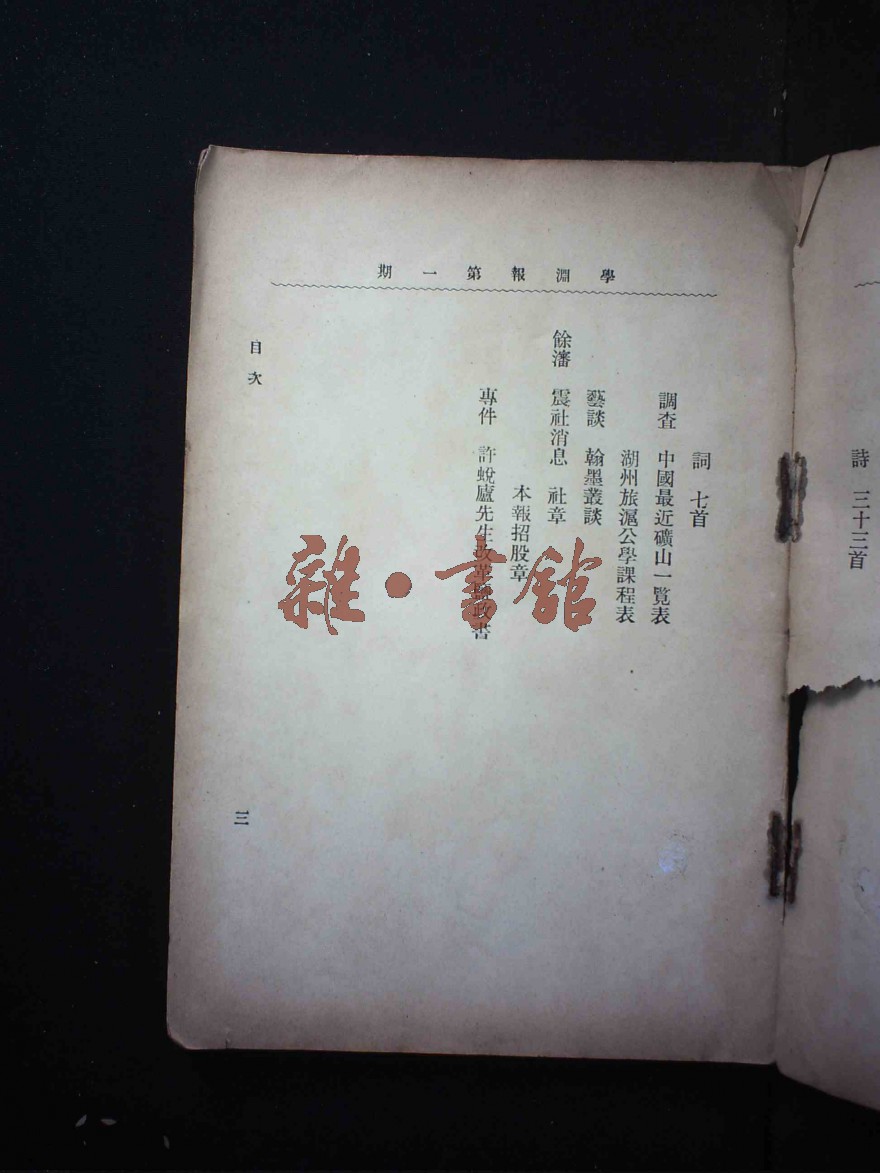 詩 三十三首
學淵報第一期
詞 七首
調查 中國最近礦山一覽表
湖州旅滬公學課程表
藝談 翰墨叢談
餘瀋 震社消息 社章
本報招股章
專件 許蛻廬先生改革鹽政書
目次
三
雜·書館